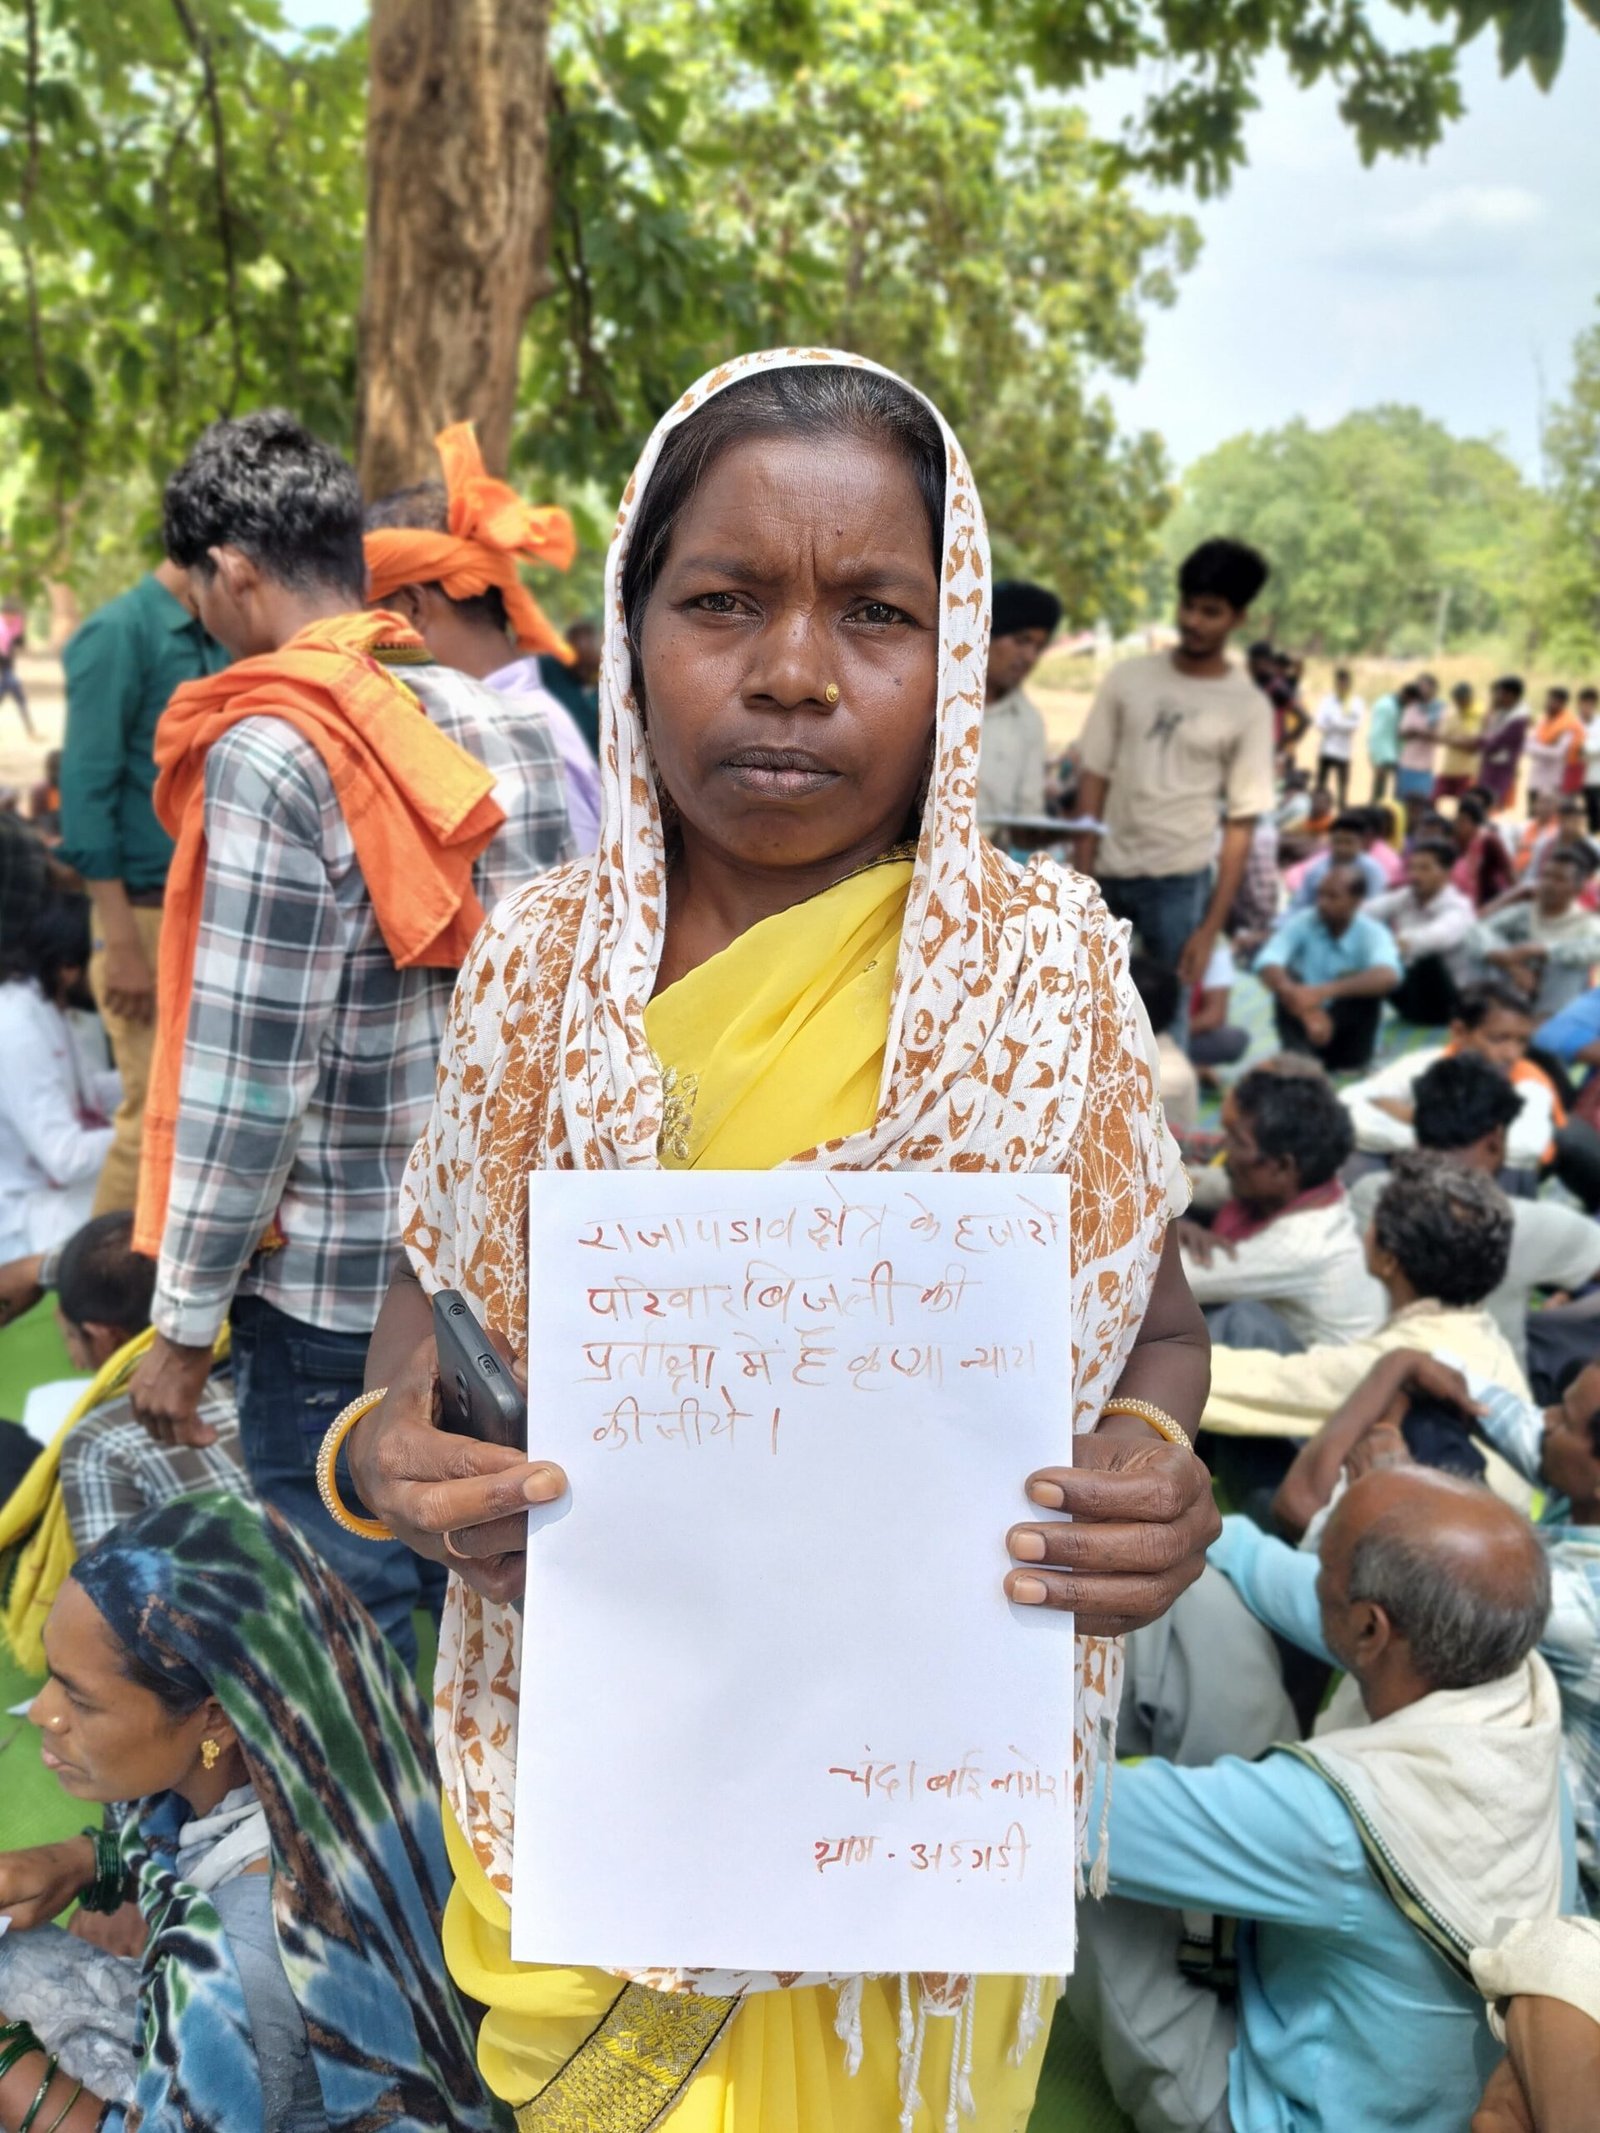 राजापडाव क्षेत्र के हजारो
परिवार बिजली की
प्रतीक्षा में है कृप्या न्याय
कीजीये।
चंदा बाई नागेश
ग्राम - अड़गड़ी